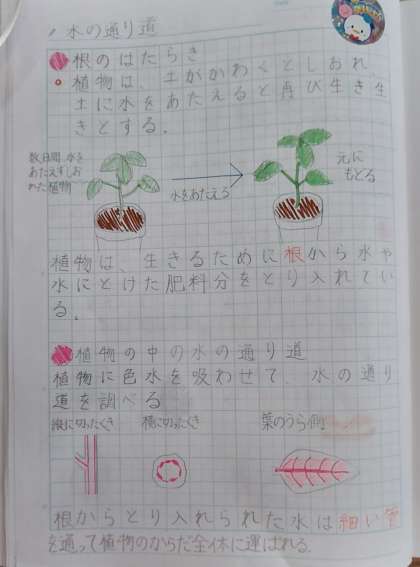 水の通り道
根のはたらき
植物は、土がかわくとしおれ、
土に水をあたえると再び生き生
きとする。
数日間水を
あたえずしお
れた植物
水をあたえる
元に
もどる
植物は、生きるために根から水や
水にとけた肥料分をとり入れてい
る。
植物の中の水の通り道
植物に色水を吸わせて、水の通り
道を調べる
縦に切ったくき 横に切ったくき 葉のうら側
根からとり入れられた水は細い管
を通って植物のからだ全体に運ばれる。